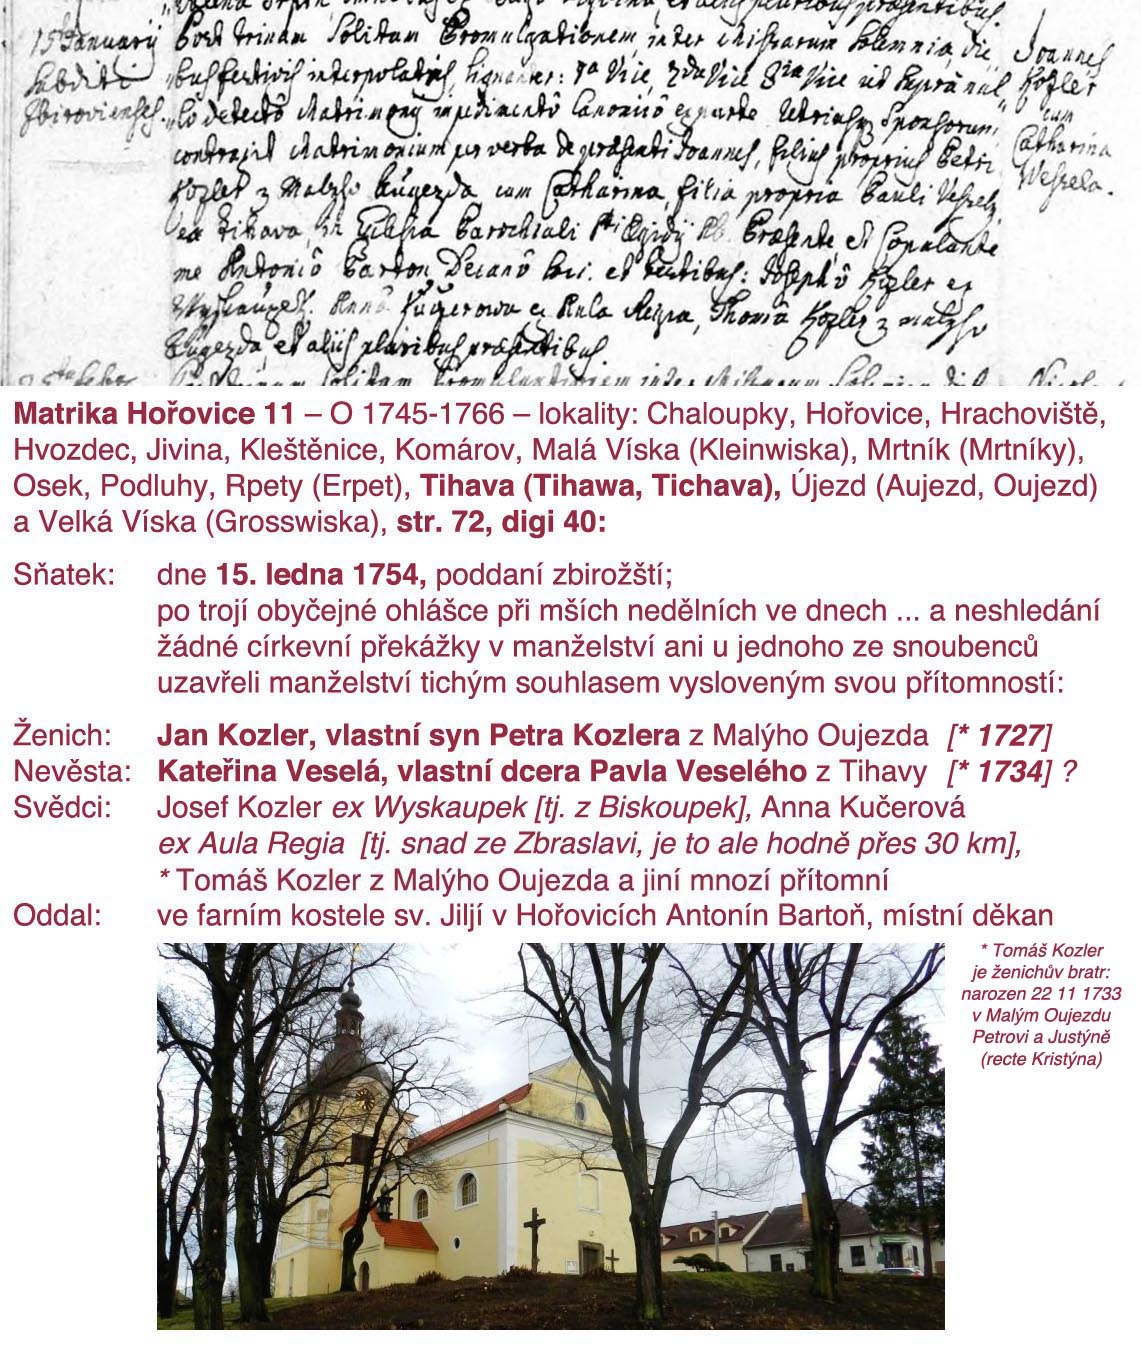 15 January
Subditi
Zbirovienses.
Post trinam Solitam Promulgationem, inter Missarum Solemnia, die
bus festivis interpolatis, 
lo detecto Matrimonij impedimento Canonico ex parte Utriusq Sponsorum,
contraxit Matrimonium per verba de praesenti Joannes, filius proprius Petri
Kozler z Malyho Augezda cum Catharina, filia propria Pauli
ex Tihava, in Ecclesia Parochiali Sti Egidij Praesente, et Copulante
me Antonio Barton Decano loci. et testibus: Josepho Kozler ex
Wyskaupek. Anna ex Aula Regia, Thoma Kozler z Malyho
Augezda et alijs pluribus praesentibus.
Joannes
Kozler
cum
Catharina
Weszela.
Matrika Hořovice 11 – O 1745-1766 – lokality: Chaloupky, Hořovice, Hrachoviště,
Hvozdec, Jivina, Kleštěnice, Komárov, Malá Víska (Kleinwiska), Mrtník (Mrtníky),
Osek, Podluhy, Rpety (Erpet), Tihava (Tihawa, Tichava), Újezd (Aujezd, Oujezd)
a Velká Víska (Grosswiska), str. 72, digi 40:
Sňatek: dne 15. ledna 1754, poddaní zbirožští;
po trojí obyčejné ohlášce při mších nedělních ve dnech ... a neshledání
žádné církevní překážky v manželství ani u jednoho ze snoubenců
uzavřeli manželství tichým souhlasem vysloveným svou přítomností:
Ženich: Jan Kozler, vlastní syn Petra Kozlera z Malýho Oujezda [* 1727]
Nevěsta: Kateřina Veselá, vlastní dcera Pavla Veselého z Tihavy [* 1734] ?
Svědci: Josef Kozler ex Wyskaupek [tj. z Biskoupek], Anna Kučerová
ex Aula Regia [tj. snad ze Zbraslavi, je to ale hodně přes 30 km],
* Tomáš Kozler z Malýho Oujezda a jiní mnozí přítomní
Oddal: ve farním kostele sv. Jiljí v Hořovicích Antonín Bartoň, místní děkan
* Tomáš Kozler
je ženichův bratr:
narozen 22 11 1733
v Malým Oujezdu
Petrovi a Justýně
(recte Kristýna)